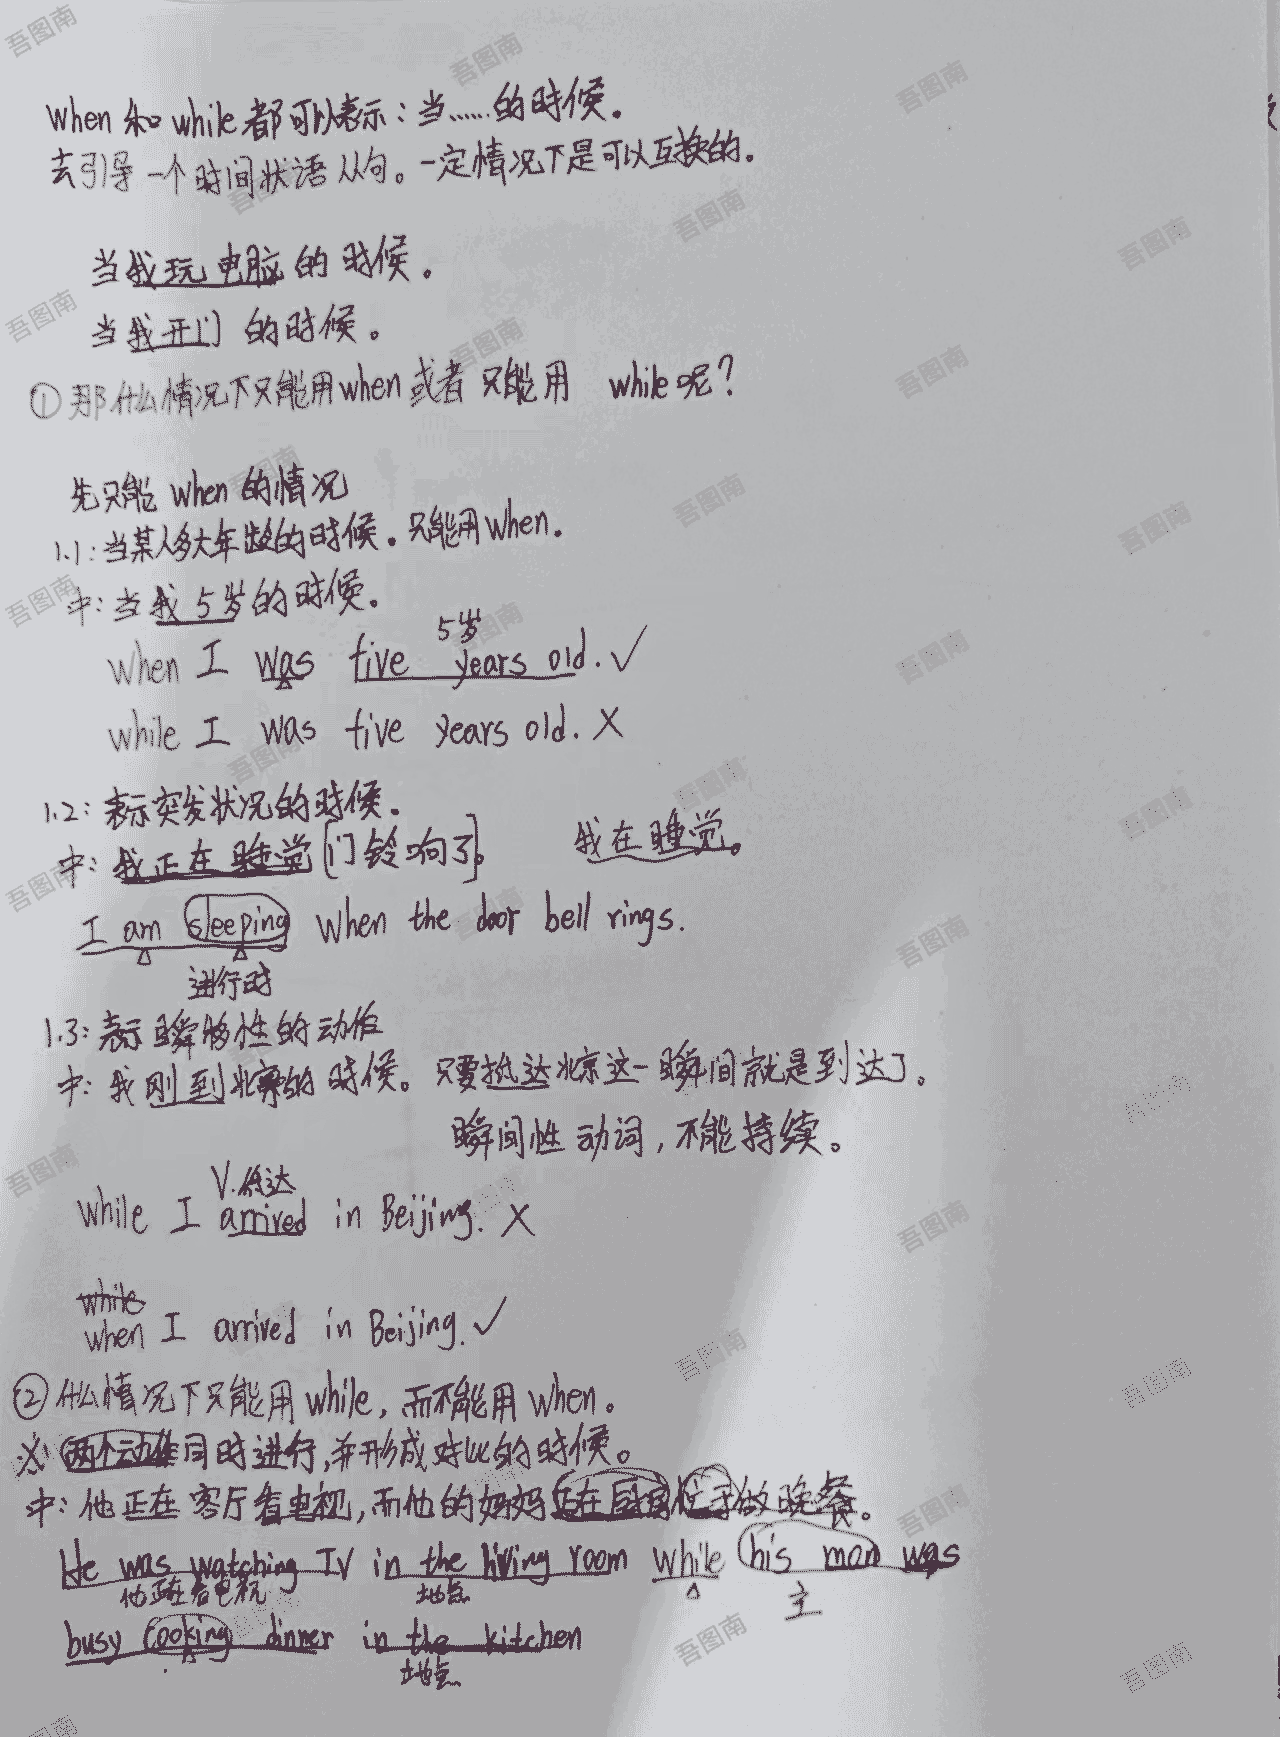 when 和 while 都可以表示：当……的时候。
去引导一个时间状语从句。一定情况下是可以互换的。
当我玩电脑的时候。
当我开门的时候。
① 那什么情况下只能用when或者只能用 while呢？
先只能 when 的情况
1.1：当某人多大年龄的时候。只能用when.
中：当我5岁的时候。
5岁
when I was five years old. ✓
while I was five years old. X
1.2：表示突发状况的时候。
中：我正在睡觉[门铃响了]。 我在睡觉。
I am sleeping when the door bell rings.
进行时
1.3：表示瞬移性的动作
中：我刚到北京的时候。只要抵达北京这一瞬间就是到达了。
瞬间性动词，不能持续。
V.抵达
while I arrived in Beijing. X
while
when I arrived in Beijing. ✓
② 什么情况下只能用while，而不能用when。
两个动作同时进行，并形成对比的时候。
中：他正在客厅看电视，而他的妈妈正在厨房忙于做晚餐。
He was watching TV in the living room while his mon was
他正在看电视 地点 主
busy cooking dinner in the kitchen
地点
吾图南